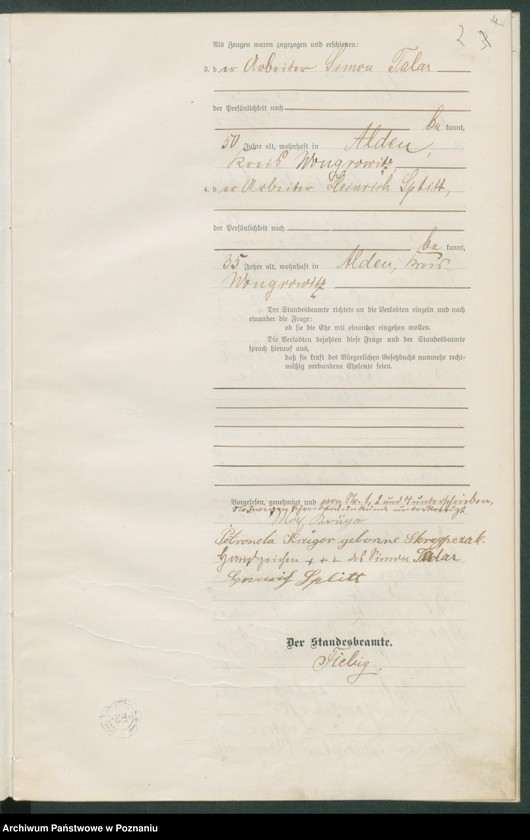 2 3
4
Als Zeugen waren zugezogen und erschienen:
3. der Arbeiter Simon Talar
der Persönlichkeit nach
bekannt,
50 Jahre alt, wohnhaft in Alden,
Kreis Wongrowitz,
4. der Arbeiter Heinrich Splitt,
der Persönlichkeit nach
bekannt,
35 Jahre alt, wohnhaft in Alden, Kreis
Wongrowitz
Der Standesbeamte richtete an die Verlobten einzeln und nach
einander die Frage:
ob sie die Ehe mit einander eingehen wollen.
Die Verlobten bejahten diese Frage und der Standesbeamte
sprach hierauf aus,
daß sie kraft des Bürgerlichen Gesetzbuchs nunmehr recht-
mäßig verbundene Eheleute seien.
Vorgelesen, genehmigt und von Nr. 1, 2 und 4 unterschrieben,
von Nr. 3 wegen Schreibensunkunde unterkreuzt
Krüger
Petronela Krüger geborene
Handzeichen + + + des Simon Talar
Heinrich Splitt
Der Standesbeamte.
Fiebig.
Archiwum Państwowe w Poznaniu